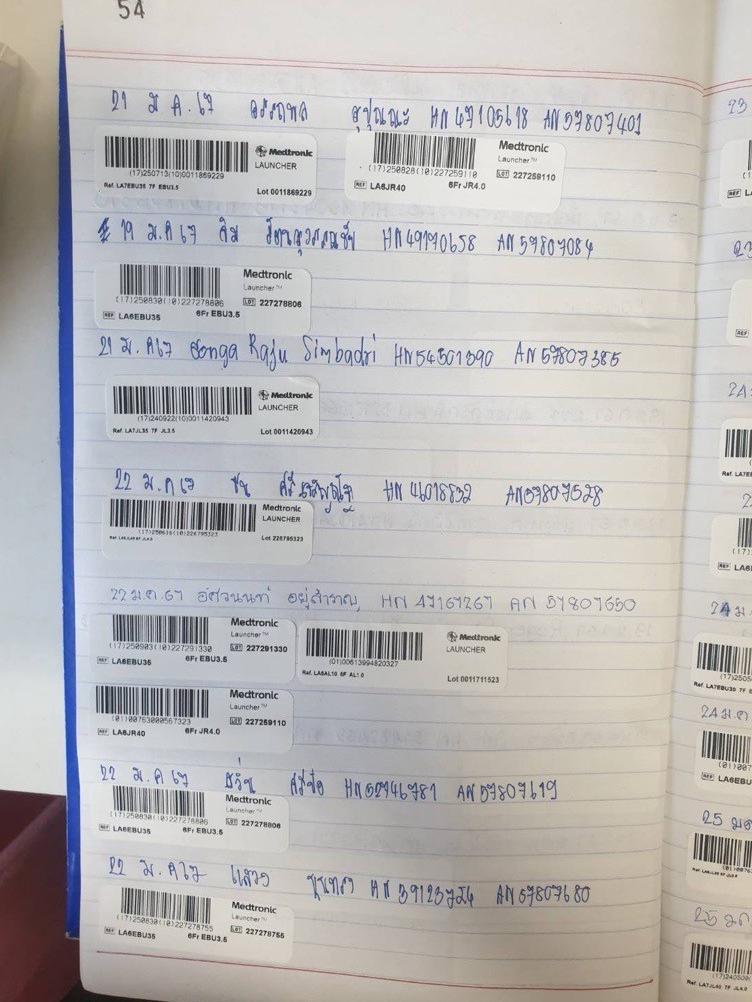 54
21 ม.ค.67 อรรถพล HN 47105618 AN 57807401
Medtronic
LAUNCHER
(17)250713(10)0011869229
Ref. LA7EBU35 7F EBU3.5
Lot 0011869229
Medtronic
Launcher™
(17)250828(10)227259110
LOT 227259110
REF LA6JR40 6Fr JR4.0
19 ม.ค 67 HN 49170658 AN 57807084
Medtronic
Launcher™
(17)250830(10)227278806
LOT 227278806
REF LA6EBU35 6Fr EBU3.5
21 ม.ค 67 Raju Simbadri HN 54501390 AN 57807385
Medtronic
LAUNCHER
(17)240922(10)0011420943
Ref. LA7JL35 7F JL3.5
Lot 0011420943
22 ม.ค 67 HN 46018832 AN 57807528
Medtronic
LAUNCHER
(17)250616(10)226795323
Lot 226795323
22 ม.ค.67 อัศวนนท์ อยู่สำราญ HN 47167267 AN 57807650
Medtronic
Launcher™
(17)250903(10)227291330
LOT 227291330
REF LA6EBU35 6Fr EBU3.5
Medtronic
LAUNCHER
(01)00613994820327
Ref. LA6AL10 6F AL1.0
Lot 0011711523
Medtronic
Launcher™
(01)00763000567323
LOT 227259110
REF LA6JR40 6Fr JR4.0
22 ม.ค 67 HN 52946781 AN 57807619
Medtronic
Launcher™
(17)250830(10)227278806
LOT 227278806
REF LA6EBU35 6Fr EBU3.5
22 ม.ค 67 HN 39123724 AN 57807680
Medtronic
Launcher™
(17)250830(10)227278755
LOT 227278755
REF LA6EBU35 6Fr EBU3.5
23
24 ม.
24 ม.ค
25 ม
25 ม.ค